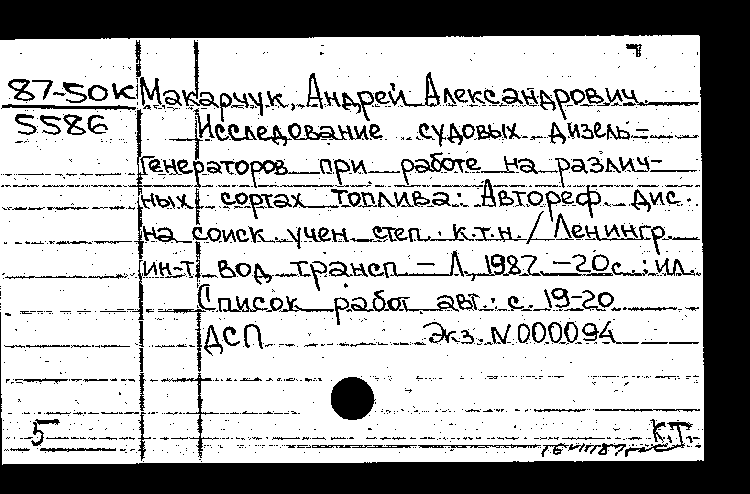 87-50К Макарчук, Андрей Александрович
5586 Исследование судовых дизель-
генераторов при работе на различ-
ных сортах топлива: Автореф. дис.
на соиск. учен. степ. к.т.н. / Ленингр.
ин-т вод. трансп. – Л., 1987. – 20с.: ил.
Список работ авт.: с. 19-20
ДСП Экз. N 000094
5 К.Т.